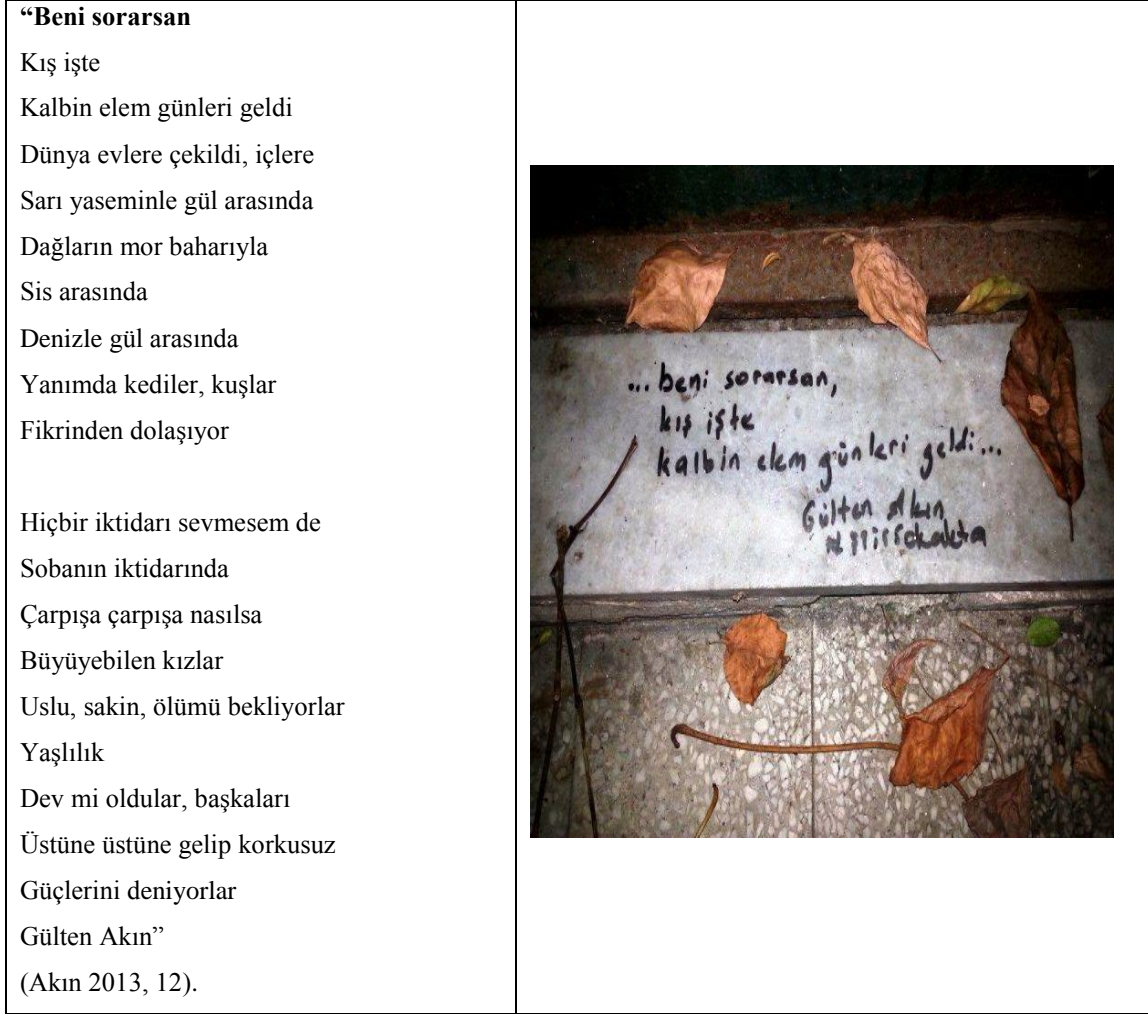 “Beni sorarsan
Kış işte
Kalbin elem günleri geldi
Dünya evlere çekildi, içlere
Sarı yaseminle gül arasında
Dağların mor baharıyla
Sis arasında
Denizle gül arasında
Yanımda kediler, kuşlar
Fikrinden dolaşıyor
Hiçbir iktidarı sevmesem de
Sobanın iktidarında
Çarpışa çarpışa nasılsa
Büyüyebilen kızlar
Uslu, sakin, ölümü bekliyorlar
Yaşlılık
Dev mi oldular, başkaları
Üstüne üstüne gelip korkusuz
Güçlerini deniyorlar
Gülten Akın”
(Akın 2013, 12).
... beni sorarsan,
kış işte
kalbin elem günleri geldi...
Gülten Akın
#şiirsokakta